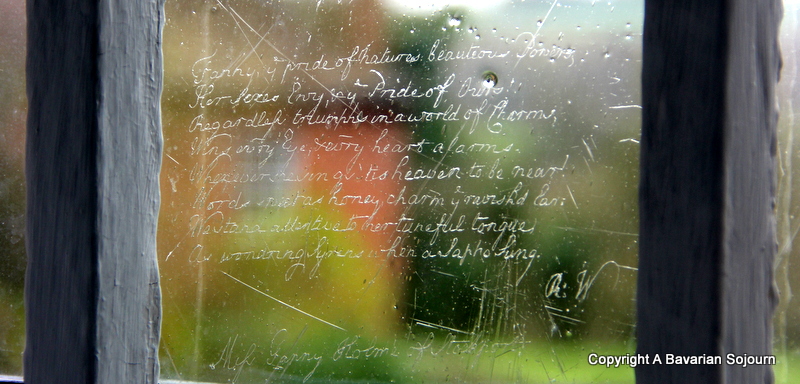 Fanny ye pride of natures beauteous Powers,
Her sexes Envy, & ye Pride of Ours!
Regardless triumphs in a world of Charms,
Wins evry Eye, & evry heart alarms.
'tis heaven to be near!
Words sweet as honey, charm ye ravish'd Ear:
attentive to her tuneful tongue,
As wondring Syrens when a Sapho Sung.
R: W
Miss Fanny of Stockport
Copyright A Bavarian Sojourn